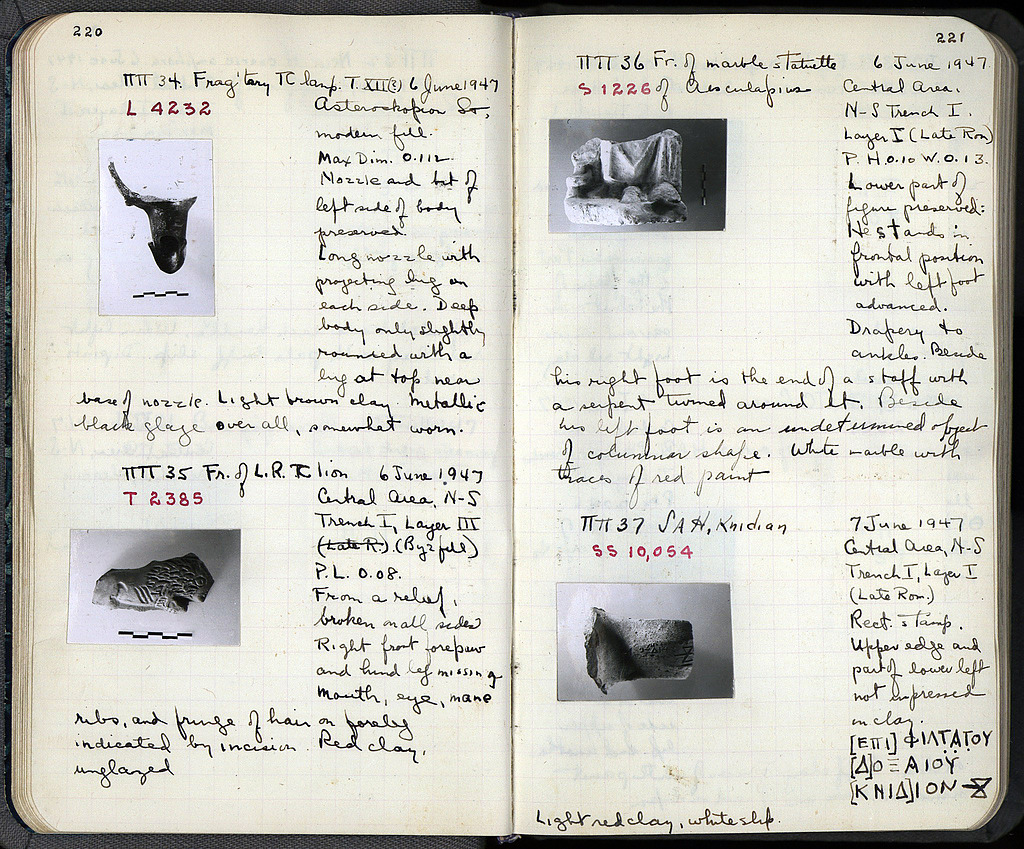 220
ΠΠ 34. Frag'tary TC lamp. T. XII(?) 6 June 1947
L 4232
Asteroskopion Sq.,
modern fill.
Max Dim. 0.112
Nozzle and bit of
left side of body
preserved.
Long nozzle with
projecting lug on
each side. Deep
body only slightly
rounded with a
lug at top near
base of nozzle. Light brown clay. Metallic
black glaze over all, somewhat worn.
ΠΠ 35 Fr. of L.R. TC lion 6 June, 1947
T 2385
Central Area, N-S
Trench I, Layer III
(Late R.) (Byz fill)
P.L. 0.08.
From a relief,
broken on all sides
Right front forepaw
and hind leg missing
Mouth, eye, mane
ribs, and fringe of hair on foreleg
indicated by incision. Red clay,
unglazed
221
ΠΠ 36 Fr. of marble statuette 6 June 1947.
S 1226 of Aesculapius
Central Area,
N-S Trench I.
Layer I (Late Rom)
P.H. 0.10 W. 0.13.
Lower part of
figure preserved:
He stands in
frontal position
with left foot
advanced.
Drapery to
ankles. Beside
his right foot is the end of a staff with
a serpent turned around it. Beside
his left foot is an undetermined object
of columnar shape. White marble with
traces of red paint
ΠΠ 37 SAH, Knidian 7 June 1947
SS 10,054
Central Area, N-S
Trench I, Layer I
(Late Rom.)
Rect. stamp.
Upper edge and
part of lower left
not impressed
in clay.
[ΕΠΙ] ΦΙΛΤΑΤΟΥ
[Δ]ΟΞ ΑΙΟΥ
[ΚΝΙΔ]ΙΟΝ
Light red clay, white slip.